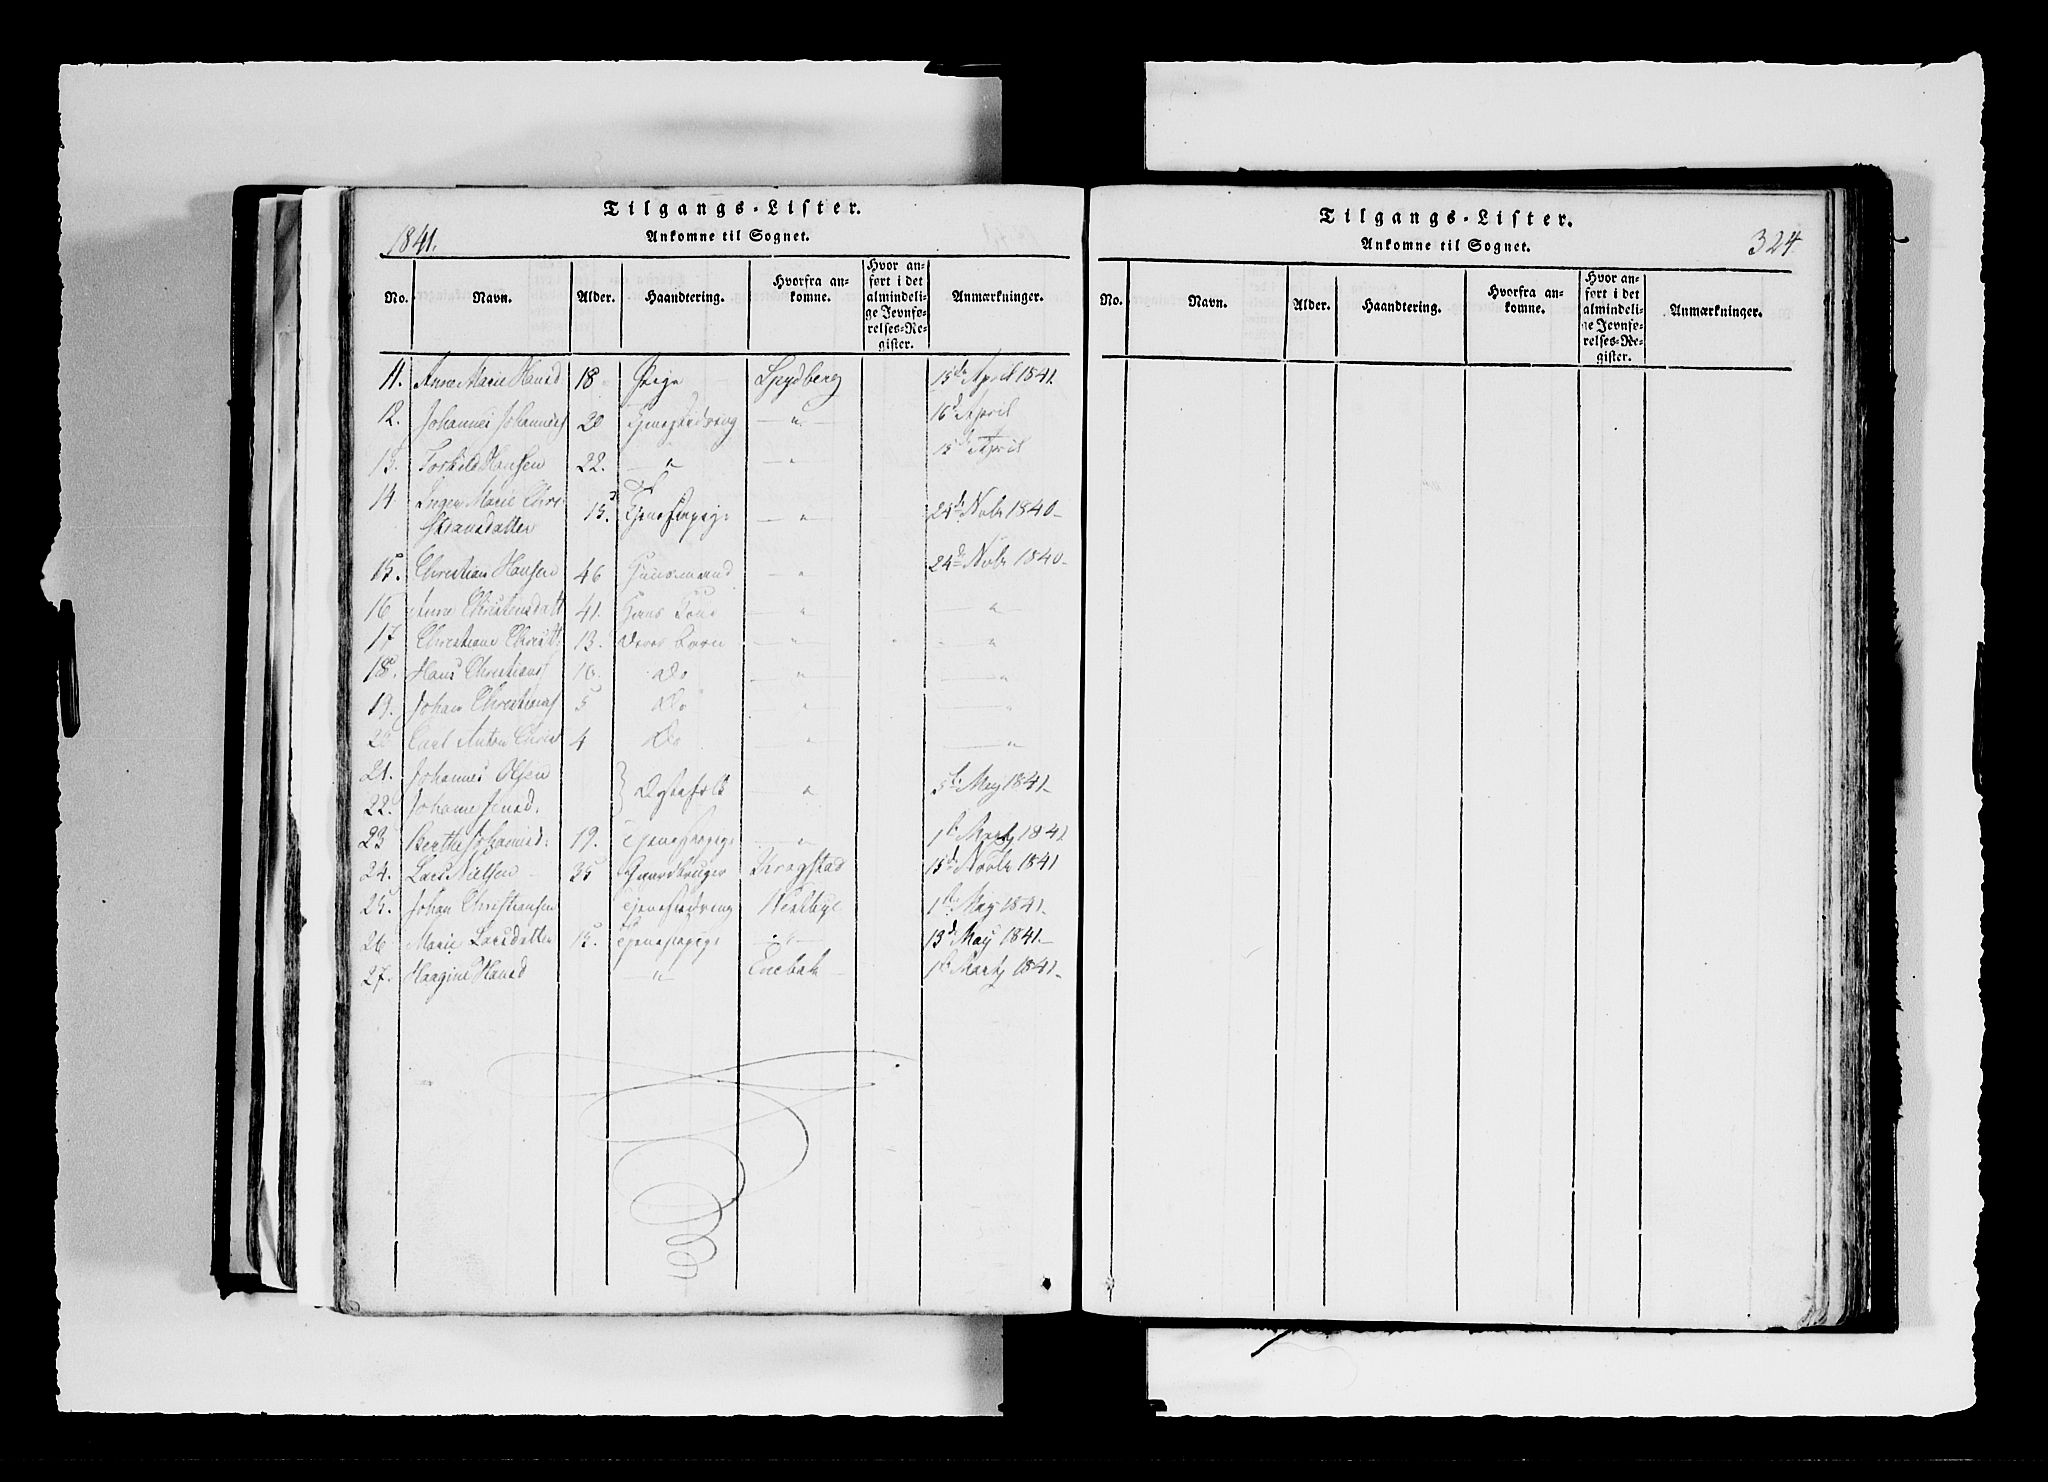 Tilgangs-Lister.
1841.
Ankomne til Sognet.
No. Navn. Alder. Haandtering. Hvorfra ankomne. Hvor anført i det almindelige Jevnførelses-Register. Anmærkninger.
11. Anne Marie Hansd 18 Pige Spydberg 15de April 1841.
12. Johannes Johanness 20 Tjenestedreng — " — 16d April
13. Torkild Hansen 22. — " — " 15d April
14 Inger Marie Chri-
stiansdatter 15. Tjenestepige — " — 24de Novbr 1840 —
15. Christian Hansen 46 Huusmand — " 24de Novbr 1840 —
16 Anne Christensdatt 41. Hans Kone — " — " —
17 Christiane Christ: 13. Deres Barn — " — — "
18. Hans Christians 10. Do — " — — "
19. Johan Christians 5 Do — " — — "
20 Carl Anton Christ 4 Do — " — — "
21. Johannes Olsen
} Ægtefolk — " 5te May 1841 —
22. Johanne Jensd.
23 Berthe Johannesd: 19. Tjenestepige — " 1ste Martz 1841
24. Lars Nielsen 35 Gaardbruger Kragstad 15de Novbr 1841
25. Johan Christiansen Tjenestedreng Vestbye 1ste May 1841.
26 Marie Larsdatter 15. Tjenestepige — " — 13de May 1841. —
27. Hansd — " — Enebak 1ste Martz 1841 —
Tilgangs-Lister.
Ankomne til Sognet.
324
No. Navn. Alder. Haandtering. Hvorfra ankomne. Hvor anført i det almindelige Jevnførelses-Register. Anmærkninger.